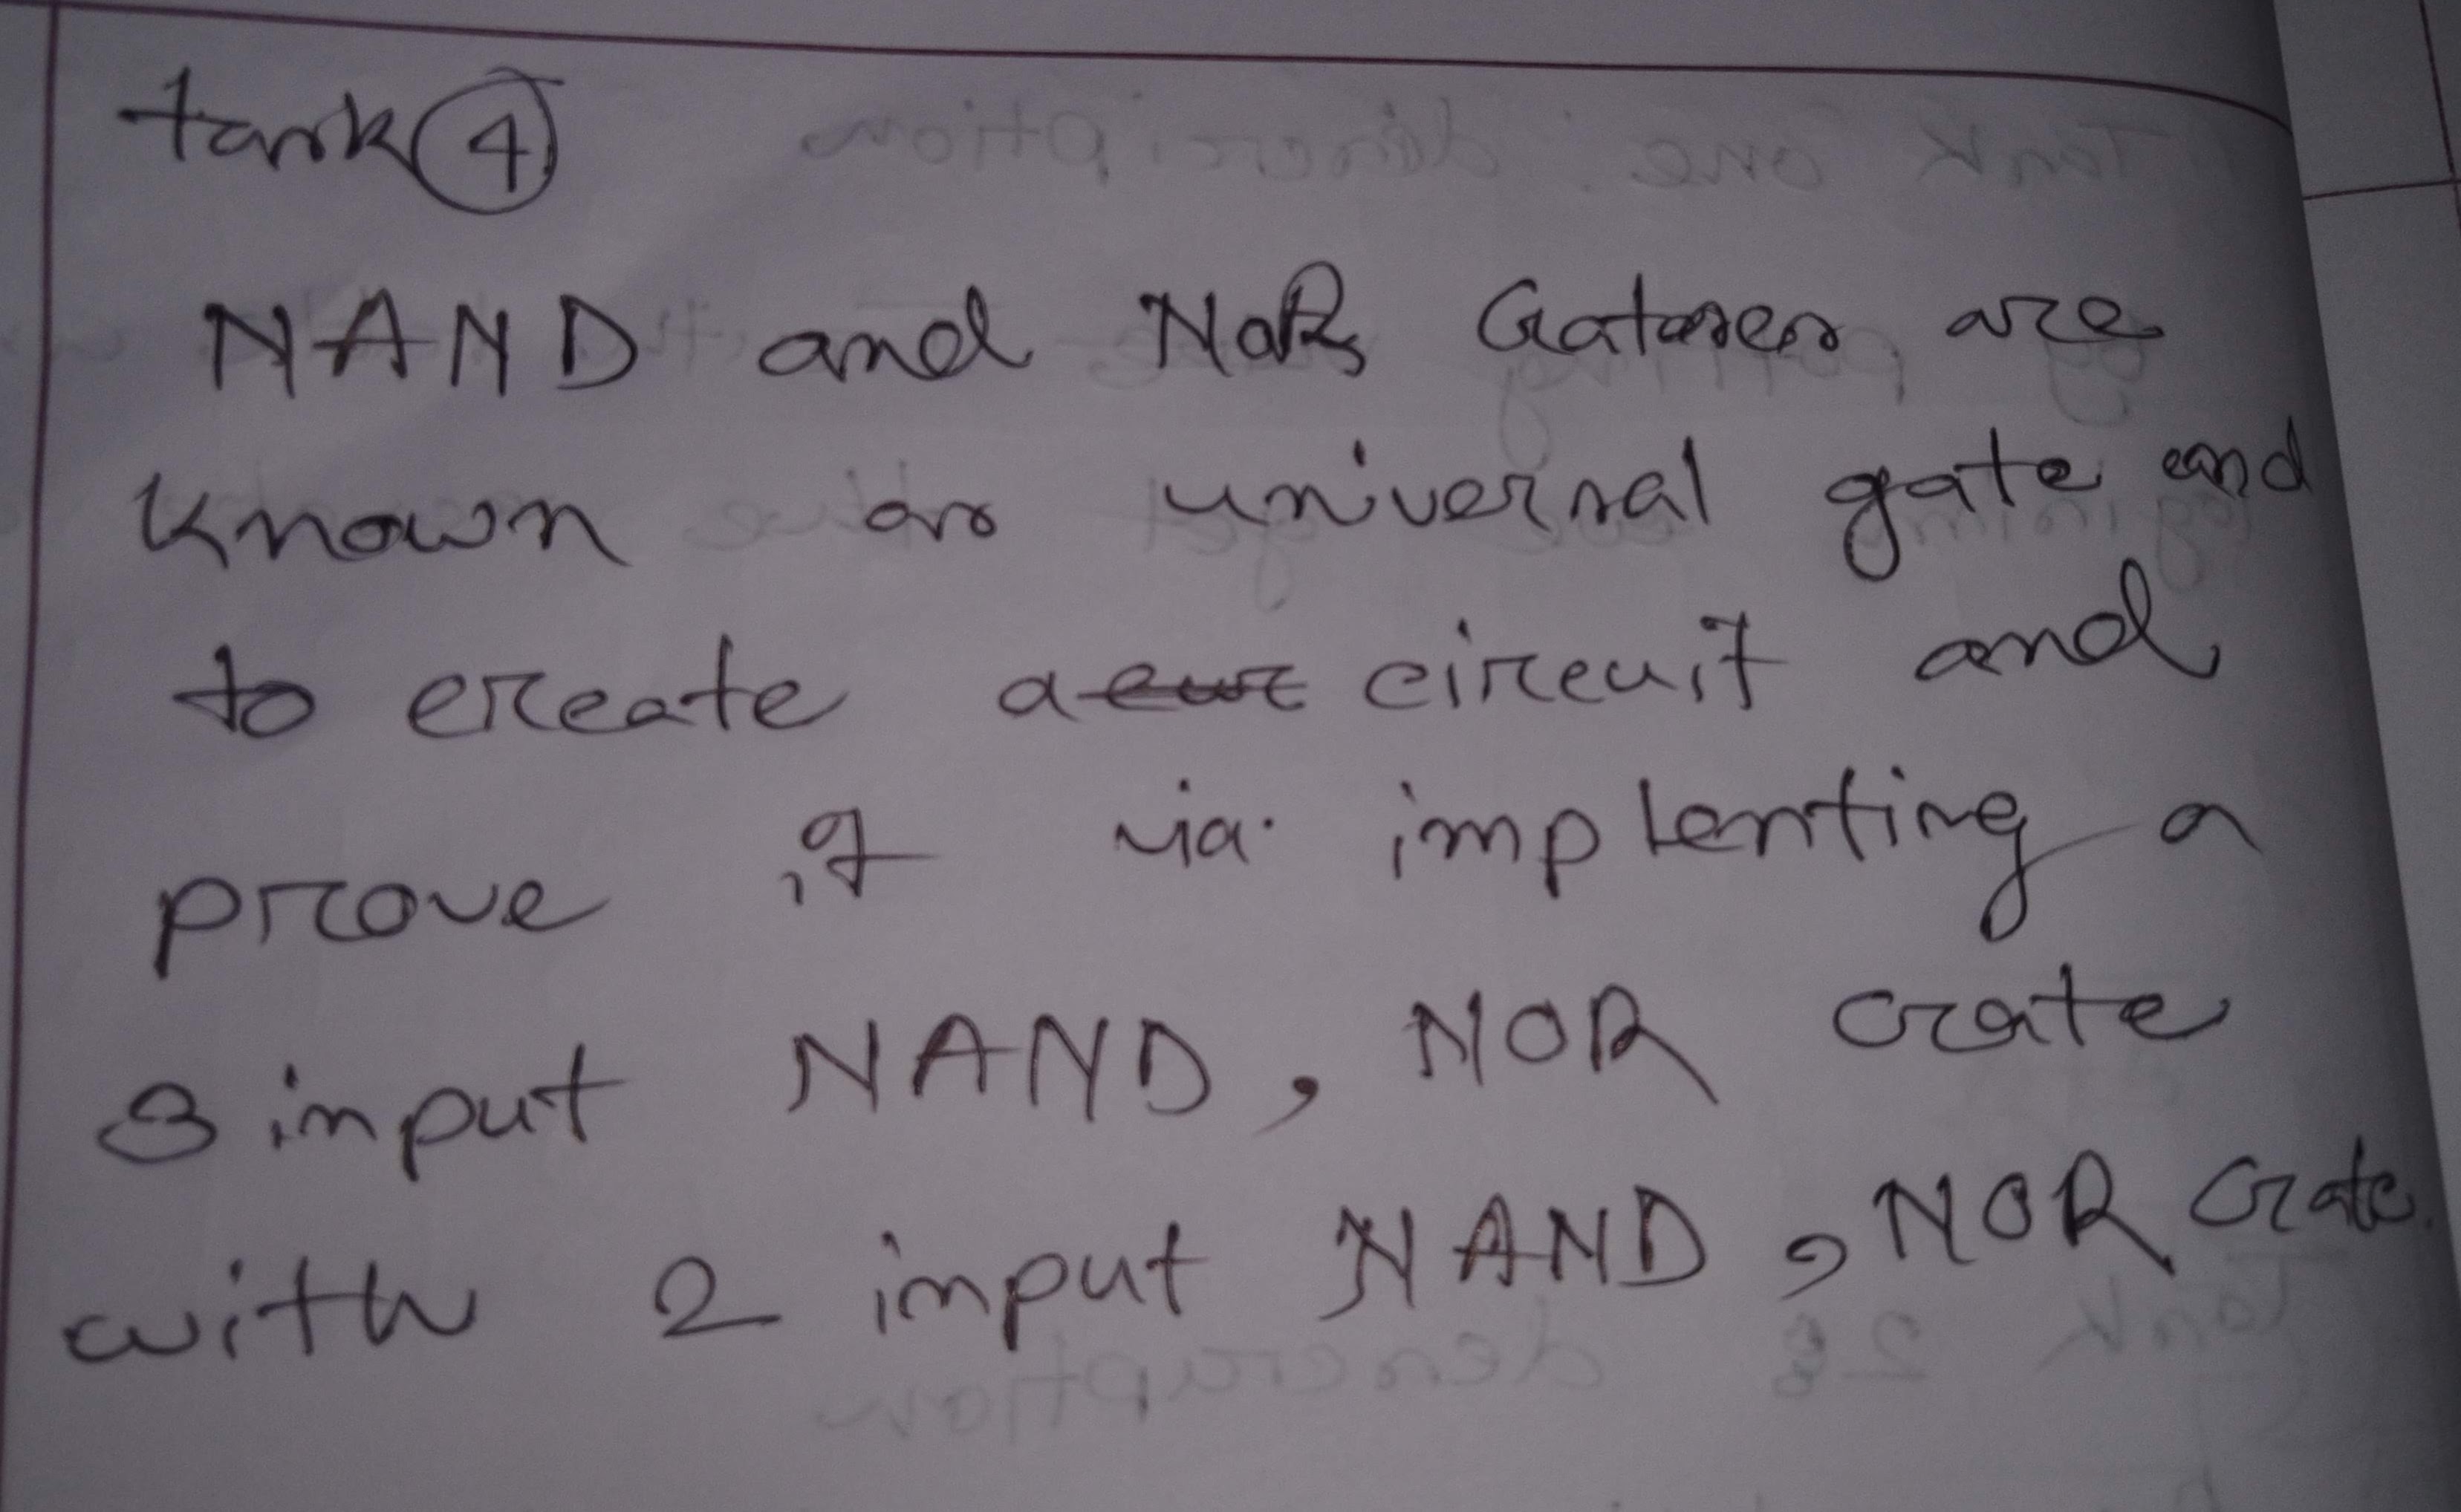 task 4
NAND and NOR Gates are
known as universal gate and
to create a circuit and
prove it via implenting a
3 input NAND, NOR Gate
with 2 input NAND, NOR Gate.